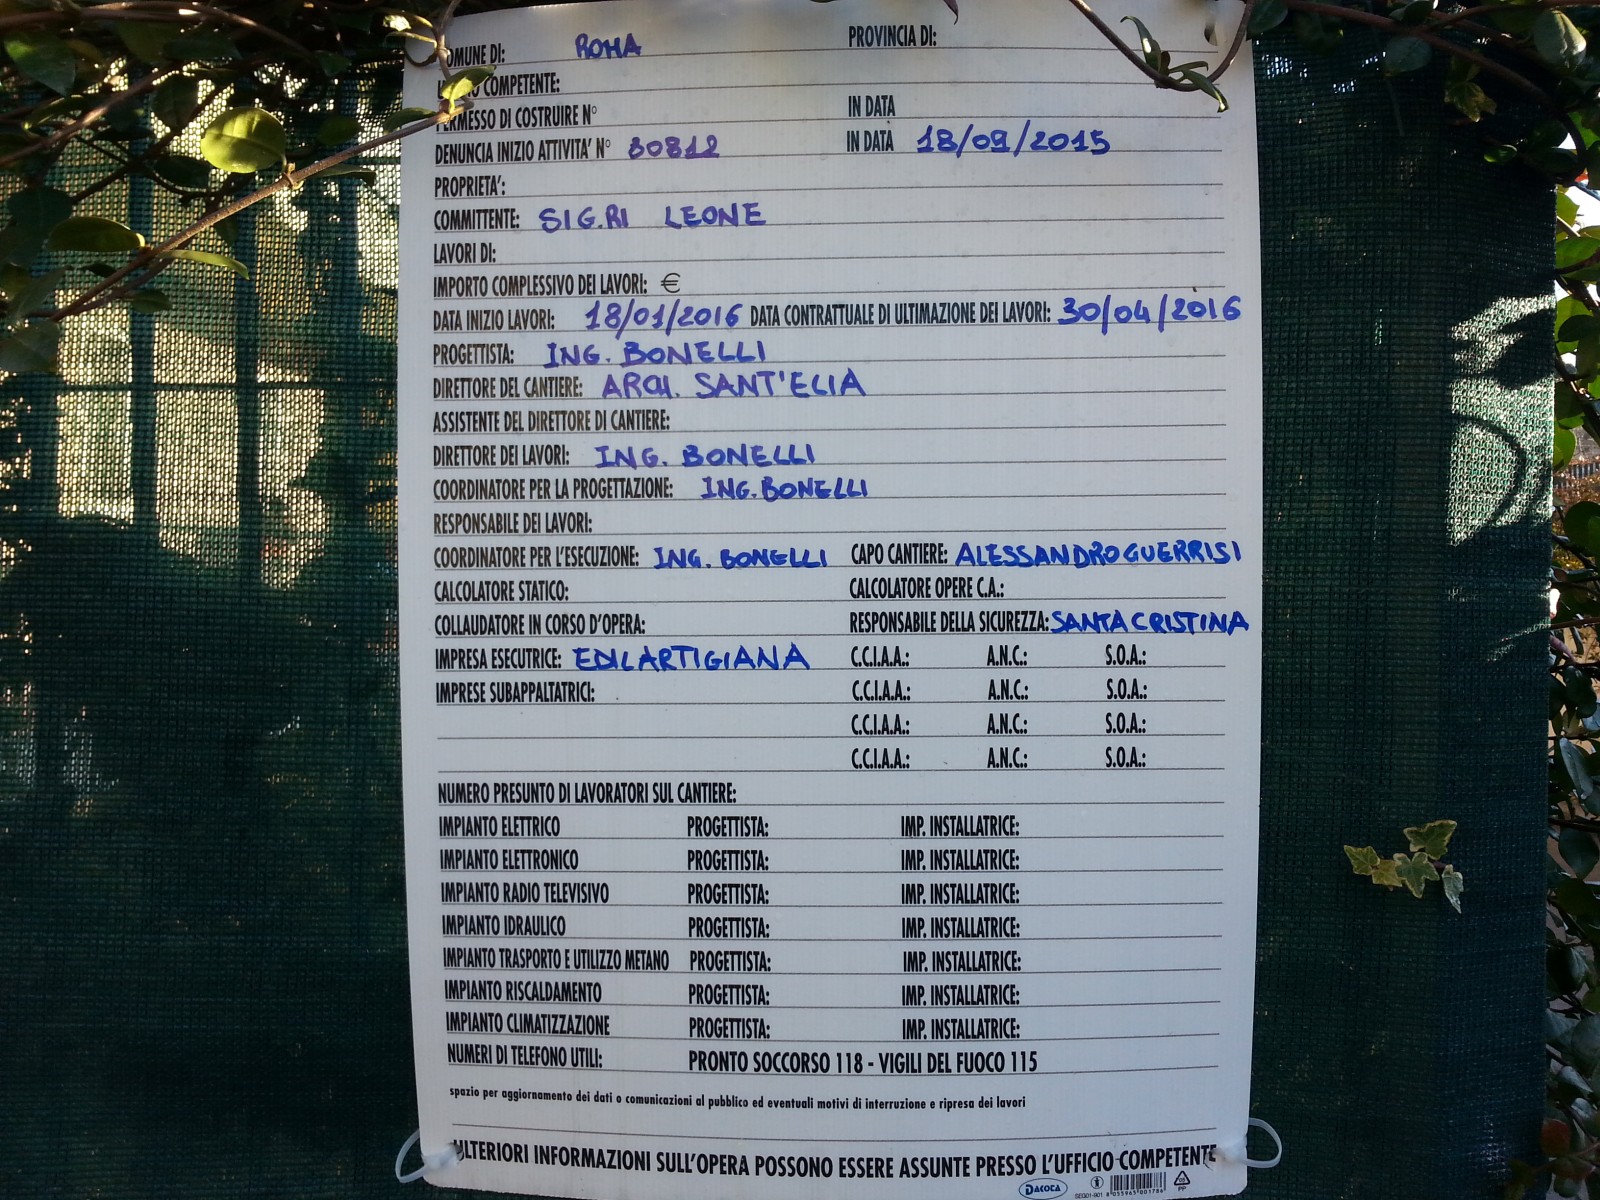 COMUNE DI: ROMA PROVINCIA DI:
COMPETENTE:
PERMESSO DI COSTRUIRE N° IN DATA
DENUNCIA INIZIO ATTIVITA' N° 80812 IN DATA 18/09/2015
PROPRIETA':
COMMITTENTE: SIG.RI LEONE
LAVORI DI:
IMPORTO COMPLESSIVO DEI LAVORI: €
DATA INIZIO LAVORI: 18/01/2016 DATA CONTRATTUALE DI ULTIMAZIONE DEI LAVORI: 30/04/2016
PROGETTISTA: ING. BONELLI
DIRETTORE DEL CANTIERE: ARCH. SANT'ELIA
ASSISTENTE DEL DIRETTORE DI CANTIERE:
DIRETTORE DEI LAVORI: ING. BONELLI
COORDINATORE PER LA PROGETTAZIONE: ING. BONELLI
RESPONSABILE DEI LAVORI:
COORDINATORE PER L'ESECUZIONE: ING. BONELLI CAPO CANTIERE: ALESSANDRO GUERRISI
CALCOLATORE STATICO: CALCOLATORE OPERE C.A.:
COLLAUDATORE IN CORSO D'OPERA: RESPONSABILE DELLA SICUREZZA: SANTA CRISTINA
IMPRESA ESECUTRICE: EDILARTIGIANA C.C.I.A.A.: A.N.C.: S.O.A.:
IMPRESE SUBAPPALTATRICI: C.C.I.A.A.: A.N.C.: S.O.A.:
C.C.I.A.A.: A.N.C.: S.O.A.:
C.C.I.A.A.: A.N.C.: S.O.A.:
NUMERO PRESUNTO DI LAVORATORI SUL CANTIERE:
IMPIANTO ELETTRICO PROGETTISTA: IMP. INSTALLATRICE:
IMPIANTO ELETTRONICO PROGETTISTA: IMP. INSTALLATRICE:
IMPIANTO RADIO TELEVISIVO PROGETTISTA: IMP. INSTALLATRICE:
IMPIANTO IDRAULICO PROGETTISTA: IMP. INSTALLATRICE:
IMPIANTO TRASPORTO E UTILIZZO METANO PROGETTISTA: IMP. INSTALLATRICE:
IMPIANTO RISCALDAMENTO PROGETTISTA: IMP. INSTALLATRICE:
IMPIANTO CLIMATIZZAZIONE PROGETTISTA: IMP. INSTALLATRICE:
NUMERI DI TELEFONO UTILI: PRONTO SOCCORSO 118 - VIGILI DEL FUOCO 115
spazio per aggiornamento dei dati o comunicazioni al pubblico ed eventuali motivi di interruzione e ripresa dei lavori
ULTERIORI INFORMAZIONI SULL'OPERA POSSONO ESSERE ASSUNTE PRESSO L'UFFICIO COMPETENTE
DACOTA
PP